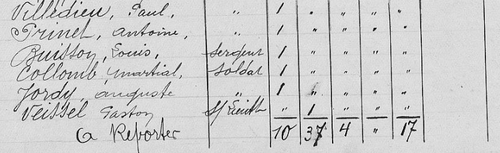 Villedieu, Paul, " 1 " " " "
Prinet, Antoine, " 1 " " " "
Buisson, Louis, Sergent 1 " " " "
Collomb, Martial, Soldat 1 " " " "
Jordy, Auguste " 1 " " " "
Veissel Gaston S/Lieutt " 1 " " "
A Reporter 10 37 4 " 17